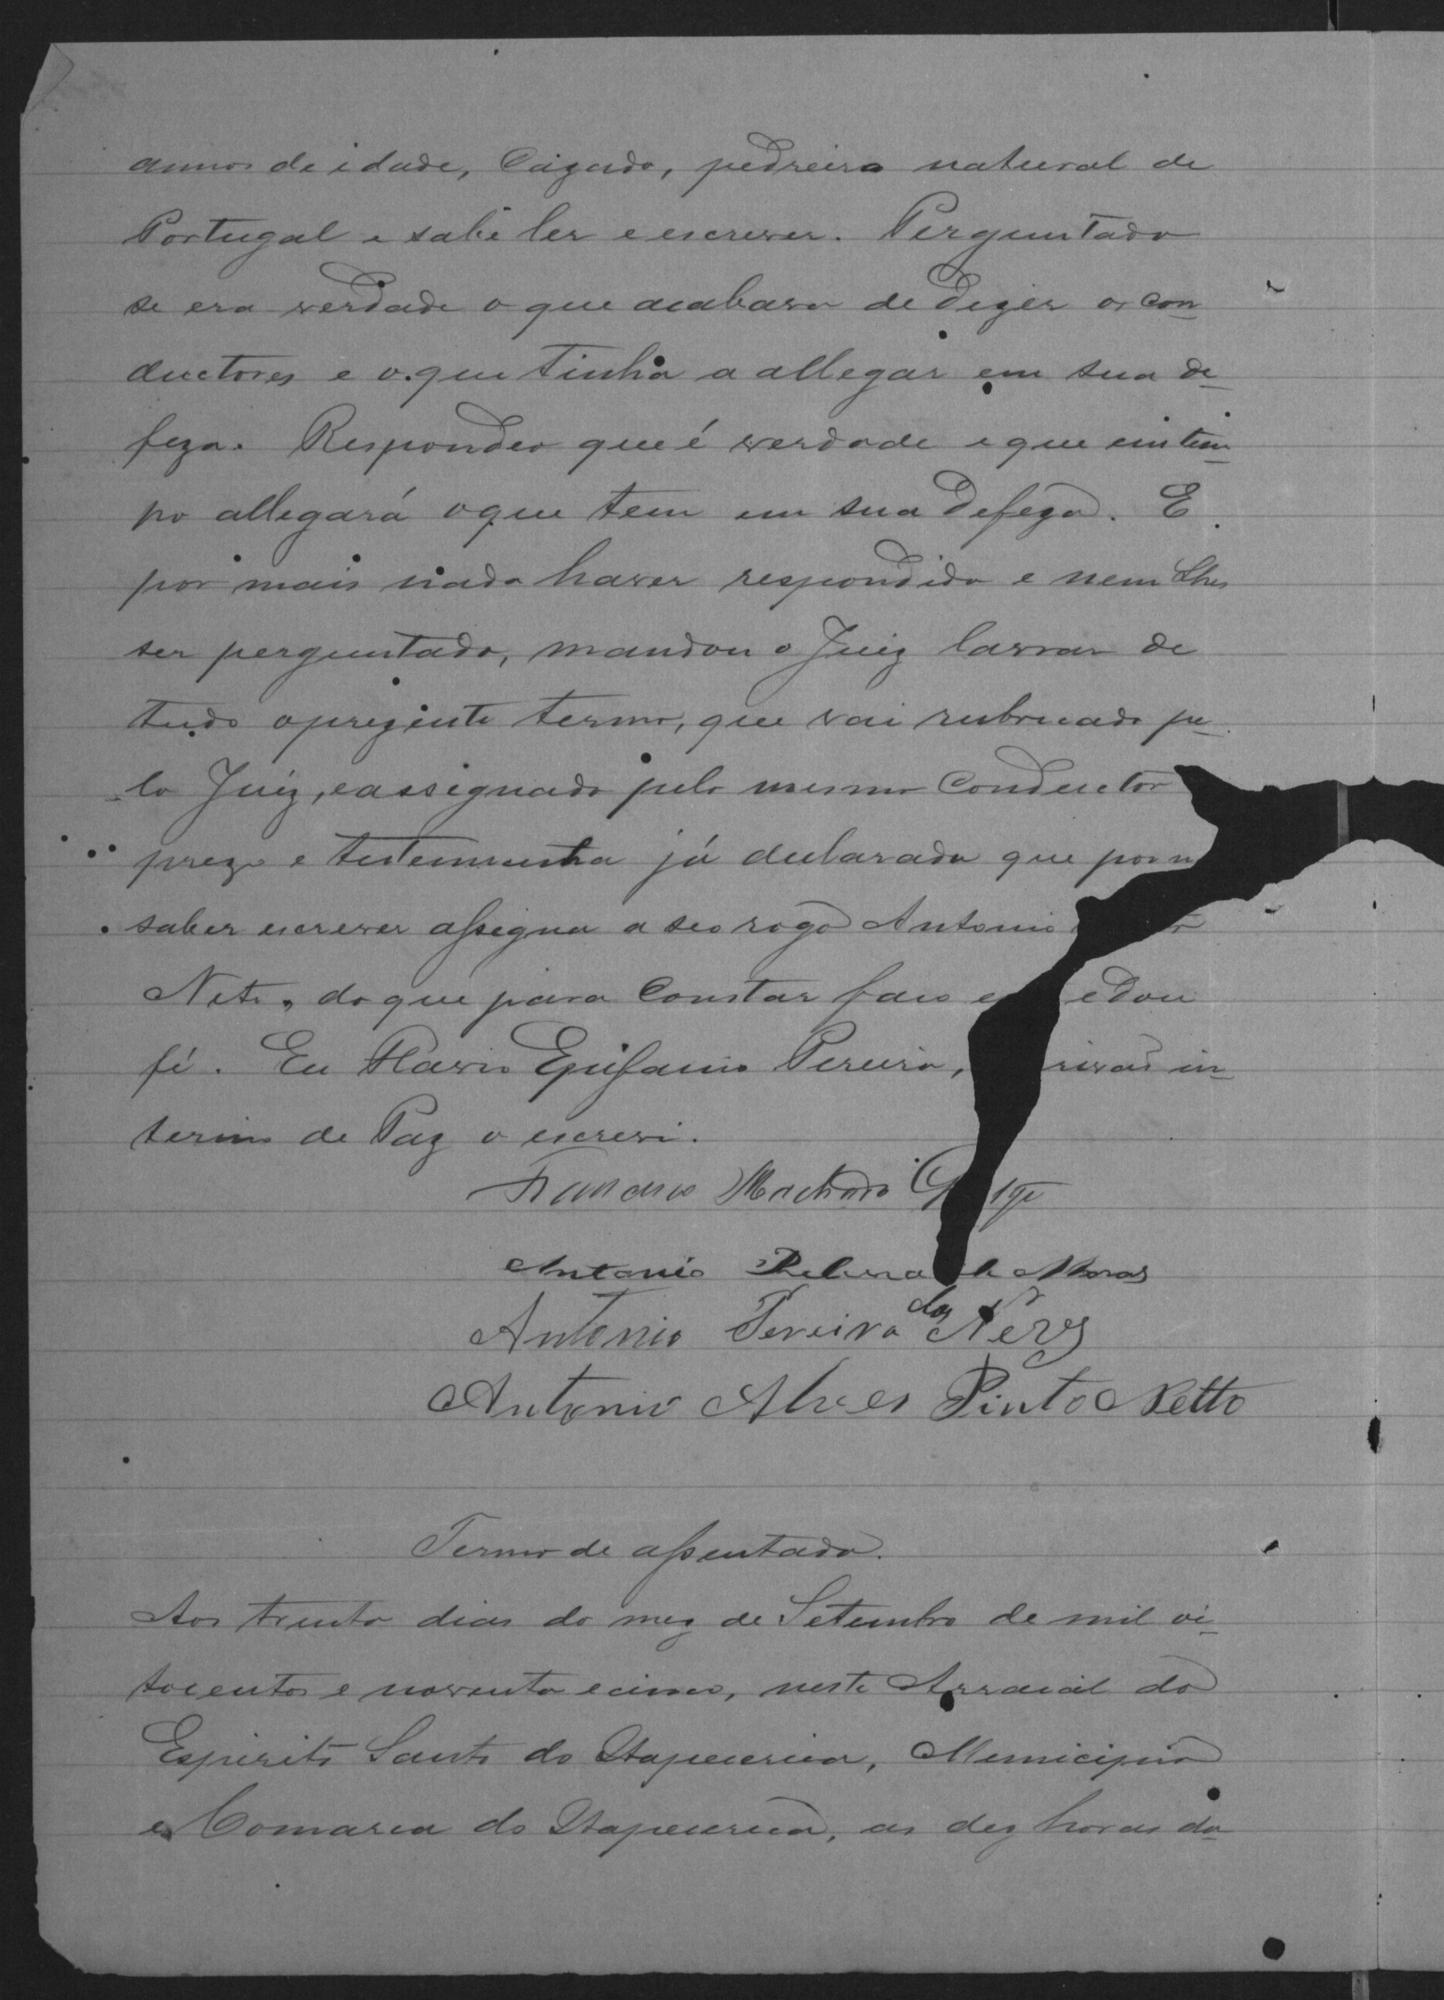 annos de idade, Cazado, pedreiro natural de
Portugal e sabe ler e escrever. Perguntado
se era verdade o que acabava de dizer os con
ductores e o que tinha a allegar em sua de
feza. Respondeo que é verdade e que em tem
po allegará o que tem em sua defeza. E
por mais nada haver respondido e nem lhes
ser perguntado, mandou o Juiz lavrar de
tudo o prezente termo, que vai rubricado pe
lo Juiz, e assignado pelo mesmo Conductor
prezo e testemunha já declarada que por n
saber escrever assigna a seo rogo Antonio
Neto, do que para Constar faço e edou
fé. Eu Flavio Epifanio Pereira, rivão in
terino de Paz o escrevi.
Francisco Machado
Antonio de Moraes
Antonio Pereira das Neves
Antonio Alves Pinto Netto
Termo de assentada.
Aos trinta dias do mez de Setembro de mil oi
tocentos e noventa e cinco, neste Arraial do
Espirito Santo do Itapecerica, Municipio
e Comarca do Itapecerica, as dez horas da